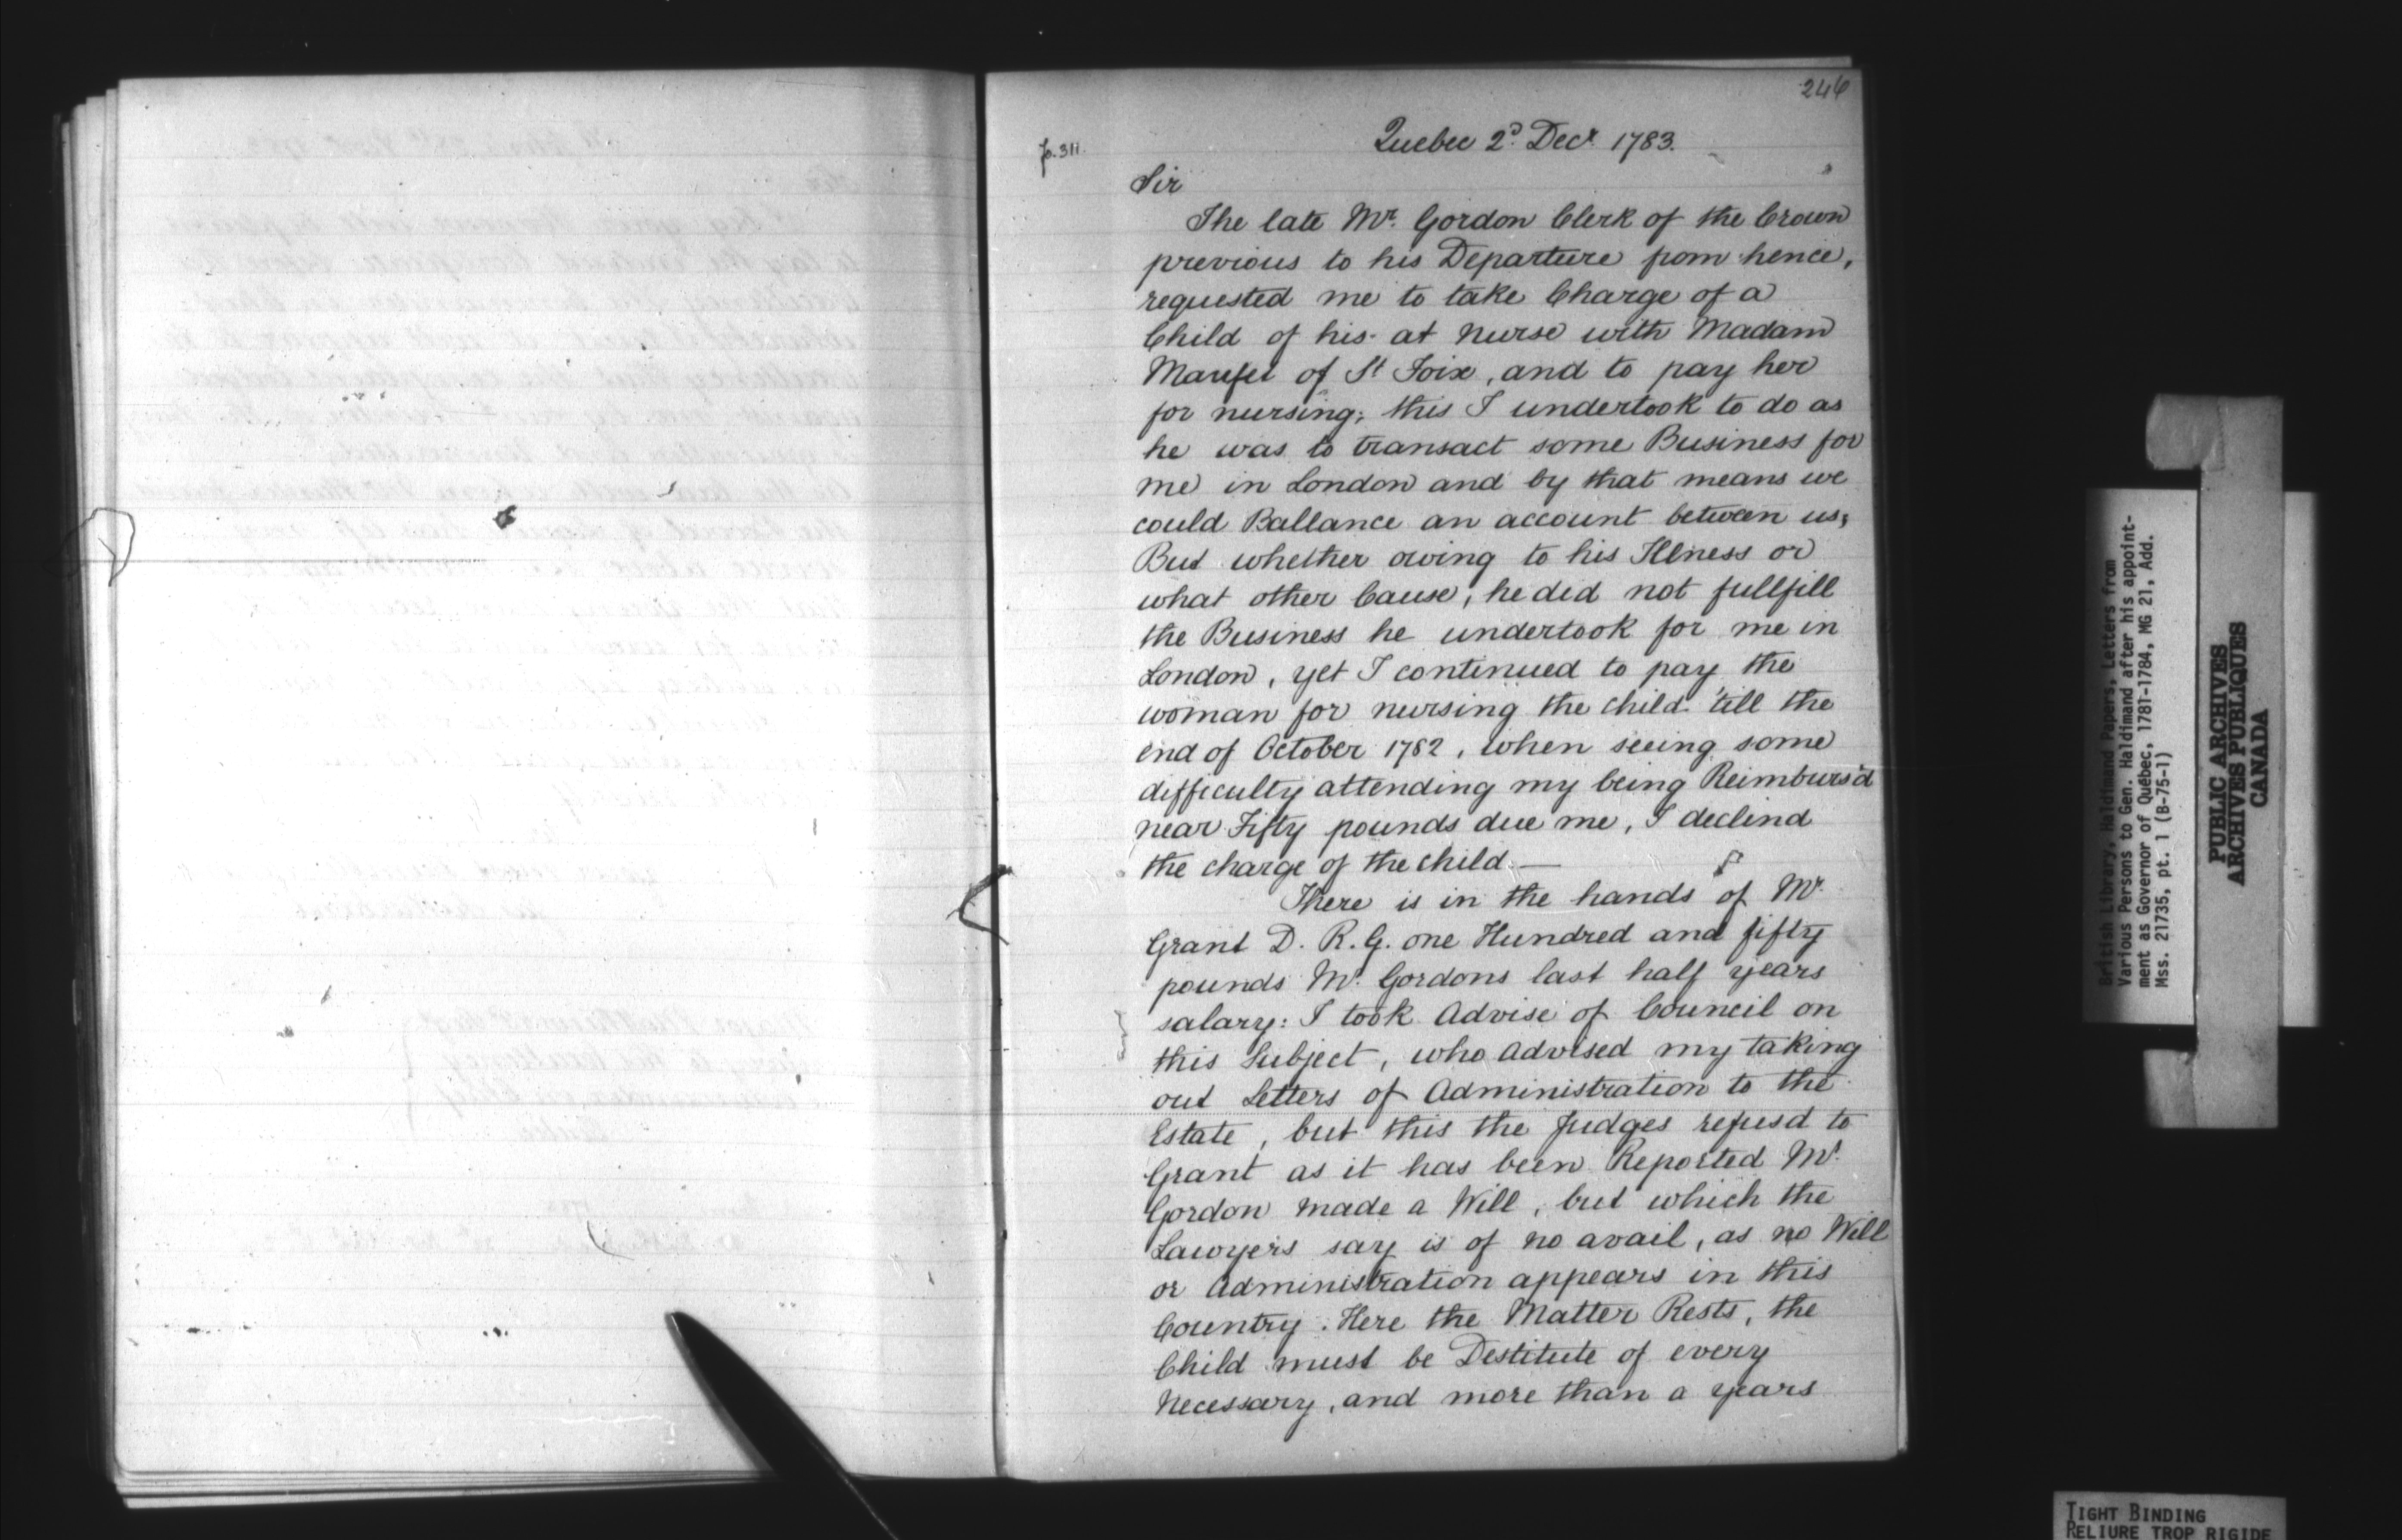 246
fo. 311.
Quebec 2d. Decr. 1783.
Sir
The late Mr. Gordon Clerk of the Crown
previous to his Departure from hence,
requested me to take Charge of a
Child of his at nurse with Madam
of St Foix, and to pay her
for nursing; this I undertook to do as
he was to transact some Business for
me in London and by that means we
could Ballance an account between us;
But whether owing to his Illness or
what other Cause, he did not fullfill
the Business he undertook for me in
London, yet I continued to pay the
woman for nursing the child 'till the
end of October 1782, when seeing some
difficulty attending my being Reimburs'd
near Fifty pounds due me, I declind
the charge of the child.—
There is in the hands of Mr.
Grant D. R. G. one Hundred and fifty
pounds Mr. Gordons last half years
salary: I took Advise of Council on
this Subject, who advised my taking
out Letters of Administration to the
Estate, but this the Judges refusd to
Grant as it has been Reported Mr.
Gordon made a Will, but which the
Lawyers say is of no avail, as no Will
or Administration appears in this
Country. Here the Matter Rests, the
Child must be Destitute of every
Necessary, and more than a years
British Library, Haldimand Papers, Letters from
Various Persons to Gen. Haldimand after his appoint-
ment as Governor of Quebec, 1781-1784, MG 21, Add.
Mss. 21735, pt. 1 (B-75-1)
PUBLIC ARCHIVES
ARCHIVES PUBLIQUES
CANADA
TIGHT BINDING
RELIURE TROP RIGIDE